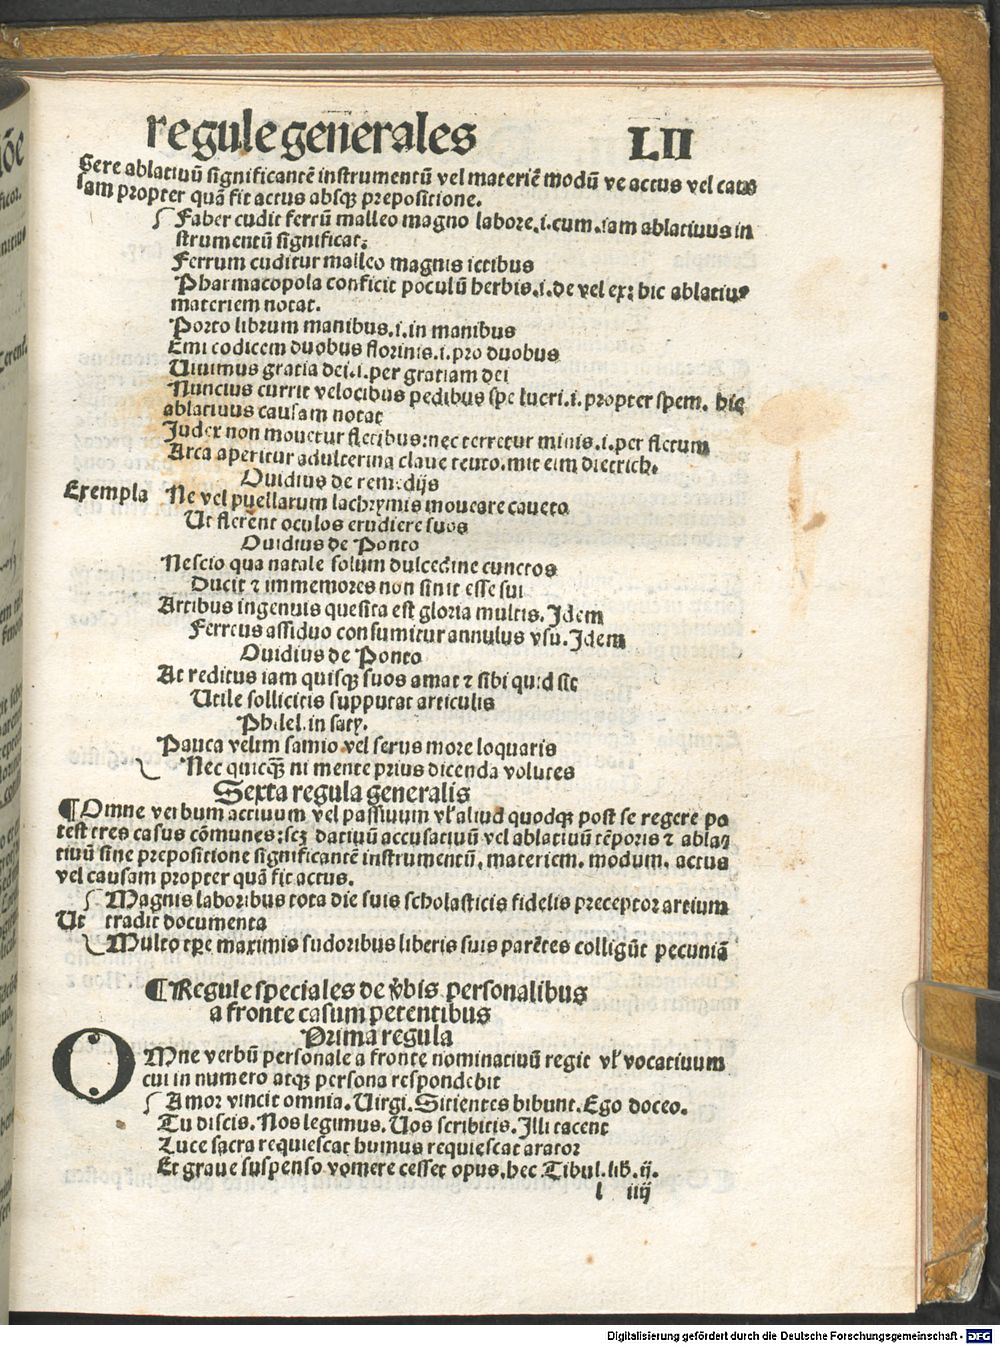 regule generales LII
gere ablatiuū significantē instrumentū vel materiē modū ve actus vel cau
sam propter quā fit actus absqꝫ prepositione.
Faber cudit ferrū malleo magno labore.i.cum.iam ablatiuus in
strumentū significat:
Ferrum cuditur malleo magnis ictibus
Pharmacopola conficit poculū herbis.i.de vel ex: hic ablatiuꝰ
materiem notat.
Porto librum manibus.i.in manibus
Emi codicem duobus florinis.i.pro duobus
Uiuimus gratia dei.i.per gratiam dei
Nuncius currit velocibus pedibus spe lucri.i.propter spem. hic
ablatiuus causam notat
Judex non mouetur fletibus:nec terretur minis.i.per fletum
Arca aperitur adulterina claue teuto.mit eim dietrich.
Ouidius de remedijs
Exempla Ne vel puellarum lachrymis moueare caueto
Ut flerent oculos erudiere suos
Ouidius de Ponto
Nescio qua natale solum dulcedine cunctos
Ducit ⁊ immemores non sinit esse sui
Artibus ingenuis quesita est gloria multis. Idem
Ferreus assiduo consumitur annulus vsu. Idem
Ouidius de Ponto
At reditus iam quisqꝫ suos amat ⁊ sibi quid sit
Utile sollicitis supputat articulis
Philel. in saty.
Pauca velim samio vel serus more loquaris
Nec quicqꝫ ni mente prius dicenda volutes
Sexta regula generalis
¶Omne verbum actiuum vel passiuum vl̓ aliud quodqꝫ post se regere po
test tres casus cōmunes:scꝫ datiuū accusatiuū vel ablatiuū tēporis ⁊ abla
tiuū sine prepositione significantē instrumentū, materiem. modum. actus
vel causam propter quā fit actus.
Magnis laboribus tota die suis scholasticis fidelis preceptor artium
Ut tradit documenta
Multo tꝑe maximis sudoribus liberis suis parētes colligūt pecuniā
¶Regule speciales de v̓bis personalibus
a fronte casum petentibus
Prima regula
OMne verbū personale a fronte nominatiuū regit vl̓ vocatiuum
cui in numero atqꝫ persona respondebit
Amor vincit omnia. Uirgi. Sitientes bibunt. Ego doceo.
Tu discis. Nos legimus. Uos scribitis. Illi tacent
Luce sacra requiescat humus requiescat arator
Et graue suspenso vomere cesset opus. hec Tibul. lib̄. ij.
l iiij
Digitalisierung gefördert durch die Deutsche Forschungsgemeinschaft - DFG